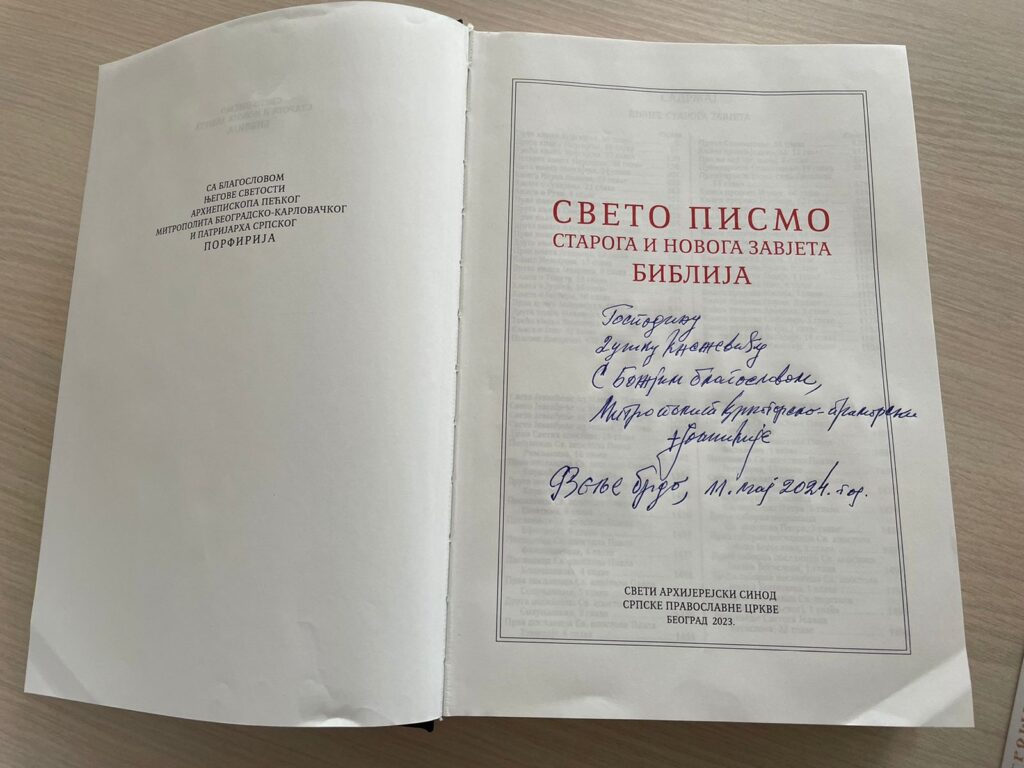 СА БЛАГОСЛОВОМ
ЊЕГОВЕ СВЕТОСТИ
АРХИЕПИСКОПА ПЕЋКОГ
МИТРОПОЛИТА БЕОГРАДСКО-КАРЛОВАЧКОГ
И ПАТРИЈАРХА СРПСКОГ
ПОРФИРИЈА
СВЕТО ПИСМО
СТАРОГА И НОВОГА ЗАВЈЕТА
БИБЛИЈА
Господину
Душку Кнежевићу
С Божјим благословом,
Митрополит црногорско-приморски
+Јоаникије
брдо, 11. мај 2024. год.
СВЕТИ АРХИЈЕРЕЈСКИ СИНОД
СРПСКЕ ПРАВОСЛАВНЕ ЦРКВЕ
БЕОГРАД 2023.